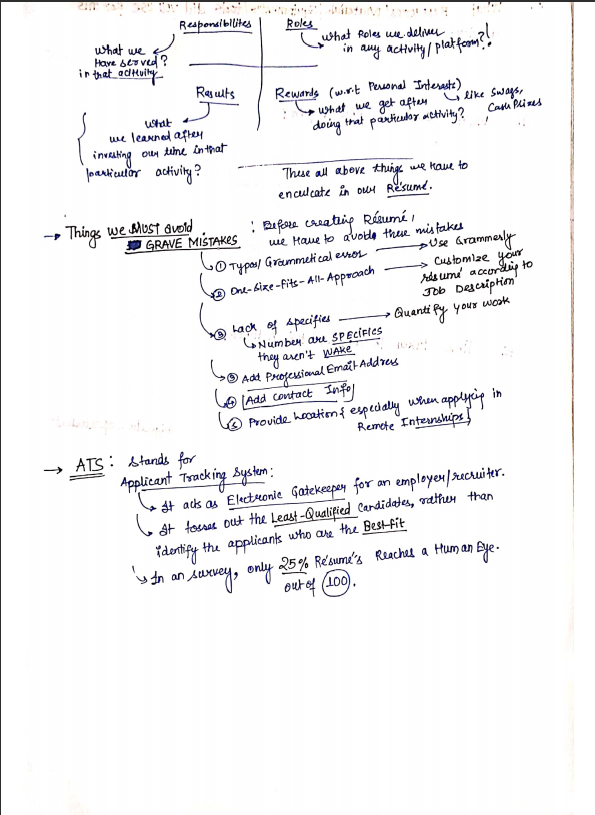 Responsibilites
what we
Have served?
in that activity
Roles
what Roles we deliver
in any activity/platform?!
Results
what
we learned after
investing our time in that
particular activity?
Rewards (w.r.t Personal Interests)
like Swags,
Cash Prizes
what we get after
doing that particular activity?
These all above things we Have to
enculcate in our Résumé.
→ Things we MUST avoid : Before creating Résumé,
GRAVE MISTAKES we Have to avoid these mistakes
① Typos/Grammetical error → Use Grammerly
② One-Size-Fits-All-Approach → Customize your
résumé according to
Job Description
③ Lack of specifies → Quantify your work
Number are SPECIFICS
they aren't WAKE
③ Add Professional Email Address
④ Add Contact Info
⑤ Provide Location & especially when applying in
Remote Internships
→ ATS : Stands for
Applicant Tracking System:
It acts as Electronic Gatekeeper for an employer/recruiter.
It tosses out the Least-Qualified Candidates, rather than
identify the applicants who are the Best-Fit
In an survey, only 25% Résumé's Reaches a Human Eye.
out of 100.